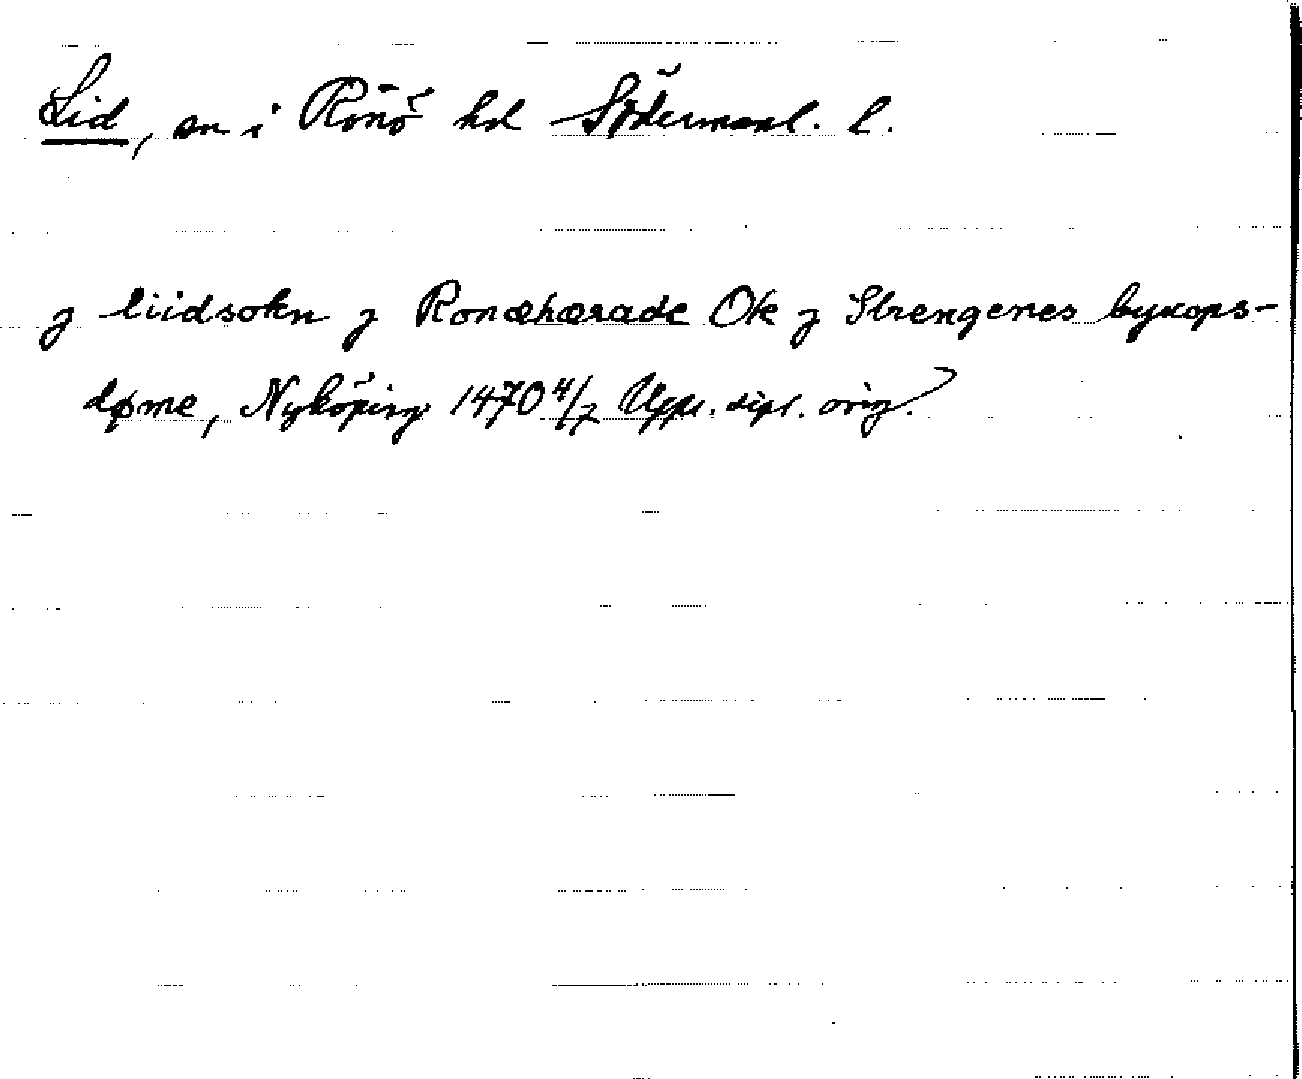 Lid, sn i Rönö hd Södermanl. l.
j liidsokn j Ronæhærade Ok j Strengenes byscops-
døme, Nyköping 1470 4/7 Uppl. dipl. orig.